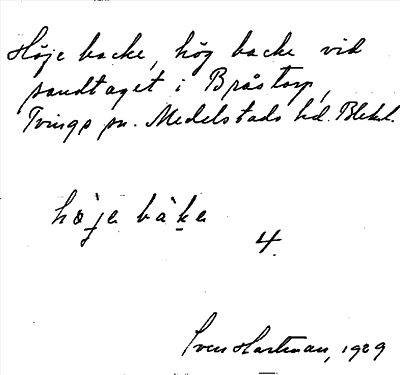 Höje backe, hög backe vid
sandtaget i Bråstorp,
Tvings sn. Medelstads hd. Blek.l.
höje bàke
4.
Sven Hartman, 1929